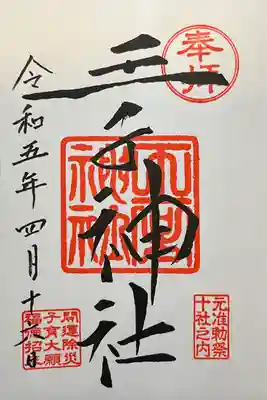 奉拝
王子神社
王子神社
令和五年四月十六日
元准勅祭
十社之内
開運除災
子育大願
福徳招来